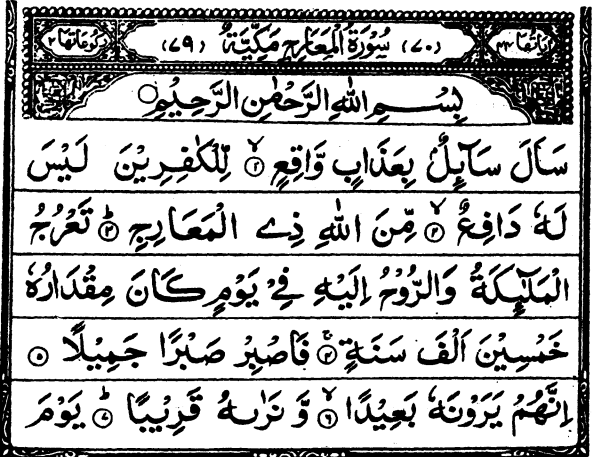 اٰيَاتُهَا ٤٤ (٧٠) سُوْرَةُ الْمَعَارِجِ مَكِّيَّةٌ (٧٩) رُكُوْعَاتُهَا ٢
بِسْمِ اللّٰهِ الرَّحْمٰنِ الرَّحِيْمِ
سَاَلَ سَآئِلٌۢ بِعَذَابٍ وَّاقِعٍ ۙ﴿١﴾ لِّلْكٰفِرِيْنَ لَيْسَ
لَهٗ دَافِعٌ ۙ﴿٢﴾ مِّنَ اللّٰهِ ذِي الْمَعَارِجِ ؕ﴿٣﴾ تَعْرُجُ
الْمَلٰٓئِكَةُ وَالرُّوْحُ اِلَيْهِ فِيْ يَوْمٍ كَانَ مِقْدَارُهٗ
خَمْسِيْنَ اَلْفَ سَنَةٍ ۚ﴿٤﴾ فَاصْبِرْ صَبْرًا جَمِيْلًا ﴿٥﴾
اِنَّهُمْ يَرَوْنَهٗ بَعِيْدًا ۙ﴿٦﴾ وَّ نَرٰىهُ قَرِيْبًا ؕ﴿٧﴾ يَوْمَ